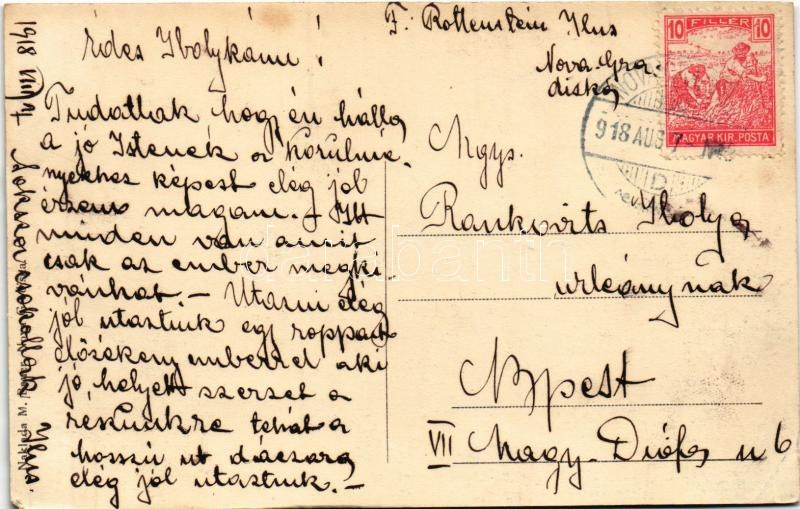 1918 VIII/7
Édes Ibolykám!
Tudathak hogy én hálla
a jó Istenek a körülmé-
nyekhez képest elég jól
érzem magam. – Itt
minden van amit
csak az ember megki
vánhat. – Utazni elég
jól utaztunk egy roppat
előzékeny emberrel aki
jó helyett szerzet a
reszünkre tehát a
hosszú ut dáczara
elég jól utaztunk. –
Sokszor csokollak Ilus.
F: Rottenstein Ilus
Nova-Gra-
diska
10 FILLER 10
MAGYAR KIR. POSTA
918 AUG 7
Ngys.
Rankovits Ibolya
urleánynak
Bpest
VII Nagy-Diófa u 6
Naklada M.
darabanth